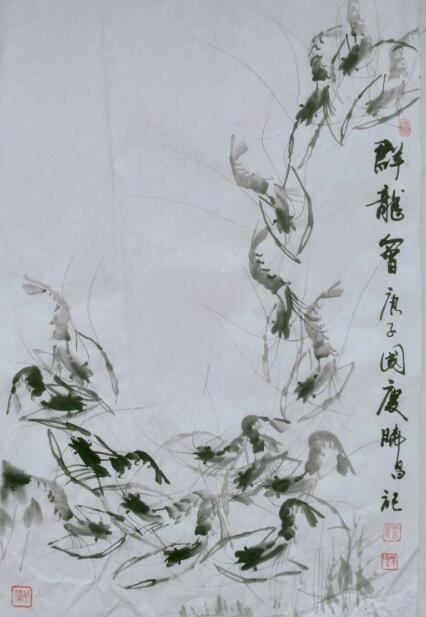 群龍會 庚子國慶勝昌記